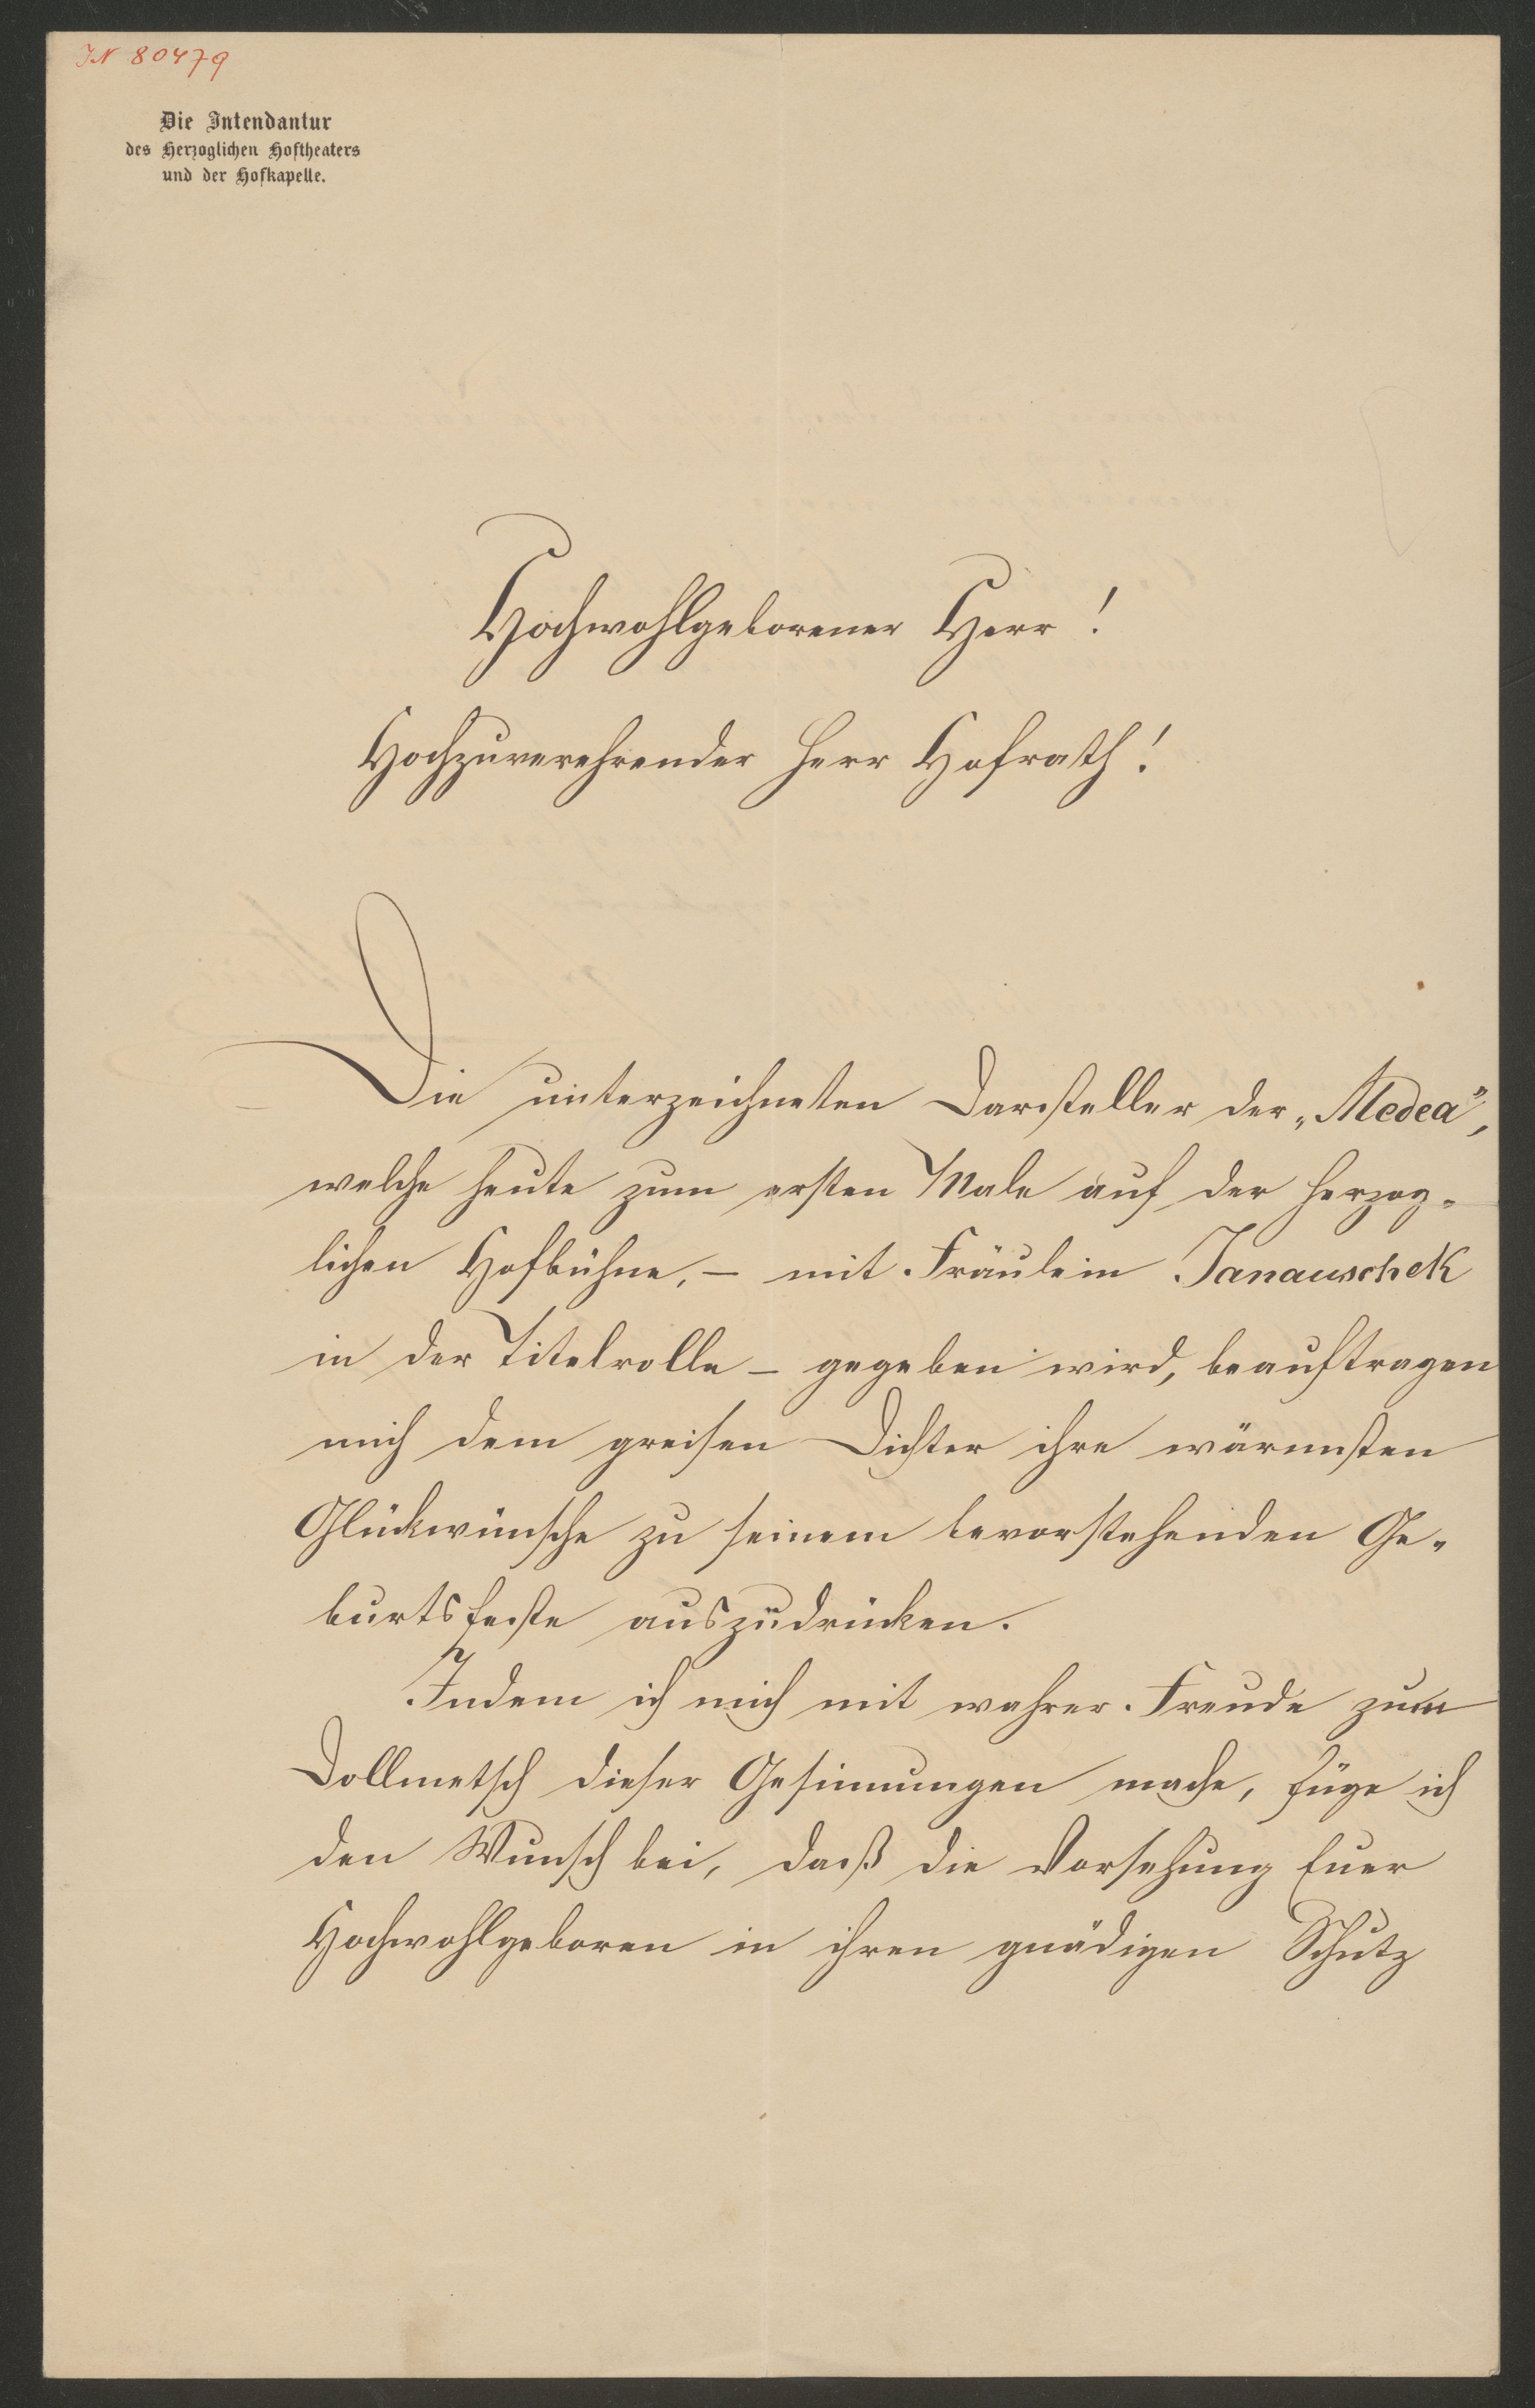 IN 80479
Die Intendantur
des Herzoglichen Hoftheaters
und der Hofkapelle.
Hochwohlgeborener Herr!
Hochzuverehrender Herr Hofrath!
Die unterzeichneten Darsteller der „Medea“,
welche heute zum ersten Male auf der Herzog-
lichen Hofbühne, – mit Fräulein Janauschek
in der Titelrolle – gegeben wird, beauftragen
mich dem greisen Dichter ihre wärmsten
Glückwünsche zu seinem bevorstehenden Ge-
burtsfeste auszudrücken.
Indem ich mich mit wahrer Freude zum
Dollmetsch dieser Gesinnungen mache, füge ich
den Wunsch bei, daß die Vorsehung Euer
Hochwohlgeboren in ihren gnädigen Schutz